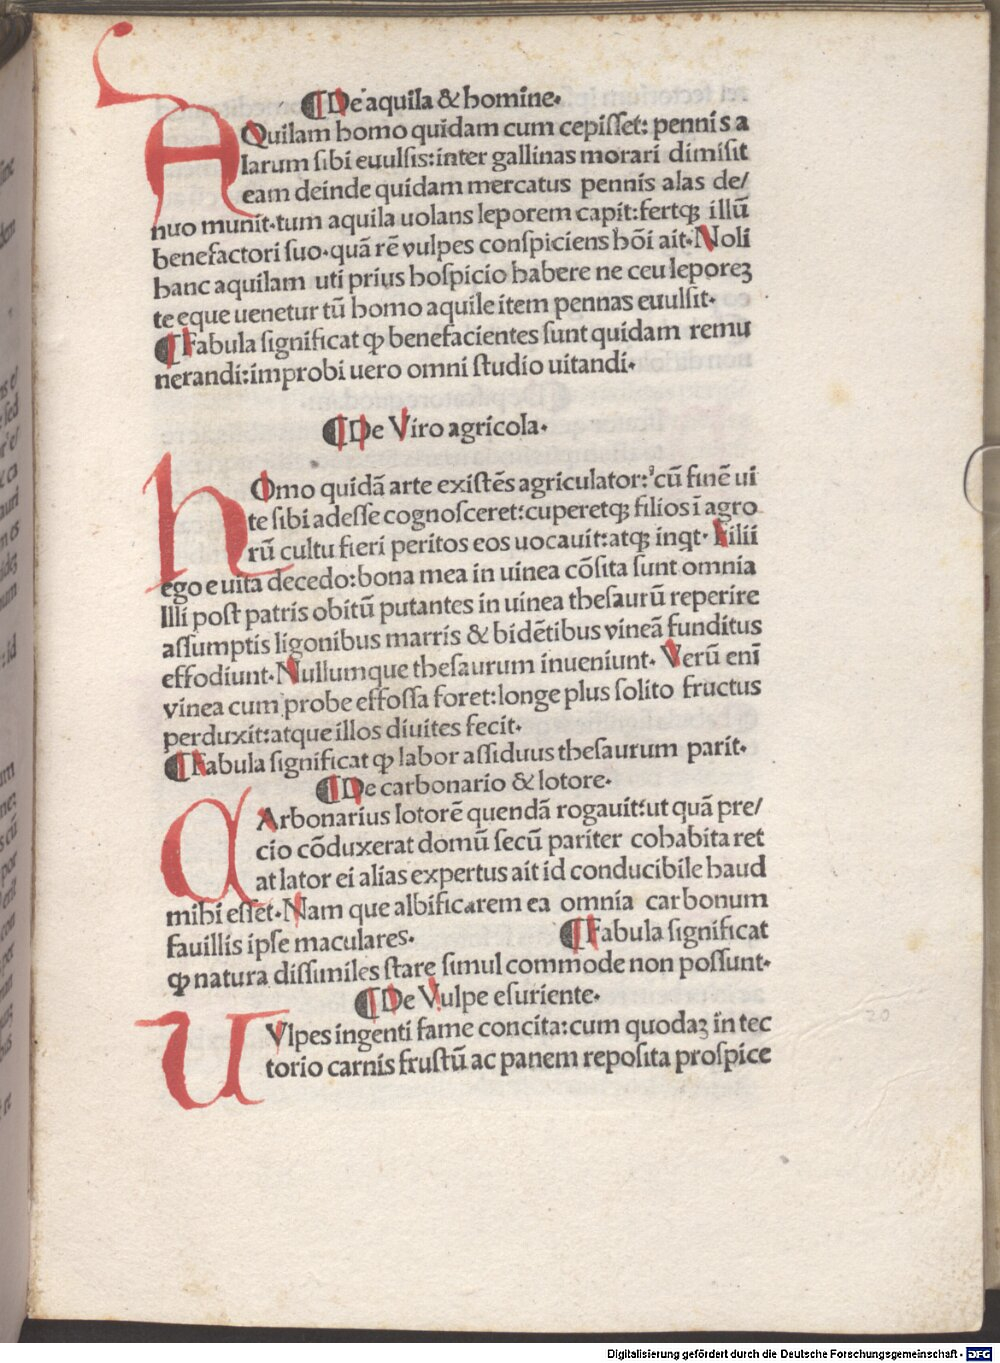 ¶ De aquila & homine.
AQuilam homo quidam cum cepisset: pennis a
larum sibi euulsis: inter gallinas morari dimisit
eam deinde quidam mercatus pennis alas de/
nuo munit. tum aquila uolans leporem capit: fertqꝫ illū
benefactori suo. quā rē vulpes conspiciens hōi ait. Noli
hanc aquilam uti prius hospicio habere ne ceu leporeꝫ
te eque uenetur tū homo aquile item pennas euulsit.
¶ Fabula significat ꝙ benefacientes sunt quidam remu
nerandi: improbi uero omni studio uitandi.
¶ De Viro agricola.
hOmo quidā arte existēs agriculator: cū finē ui
te sibi adesse cognosceret: cuperetqꝫ filios ī agro
rū cultu fieri peritos eos uocauit: atqꝫ inqt. Filii
ego e uita decedo: bona mea in uinea cōsita sunt omnia
Illi post patris obitū putantes in uinea thesaurū reperire
assumptis ligonibus marris & bidētibus vineā funditus
effodiunt. Nullumque thesaurum inueniunt. Verū enī
vinea cum probe effossa foret: longe plus solito fructus
perduxit: atque illos diuites fecit.
¶ Fabula significat ꝙ labor assiduus thesaurum parit.
¶ De carbonario & lotore.
CArbonarius lotorē quendā rogauit: ut quā pre/
cio cōduxerat domū secū pariter cohabita ret
at lator ei alias expertus ait id conducibile haud
mihi esset. Nam que albificarem ea omnia carbonum
fauillis ipse maculares. ¶ Fabula significat
ꝙ natura dissimiles stare simul commode non possunt.
¶ De Vulpe esuriente.
uVlpes ingenti fame concita: cum quodaꝫ in tec
torio carnis frustū ac panem reposita prospice
20
Digitalisierung gefördert durch die Deutsche Forschungsgemeinschaft - DFG